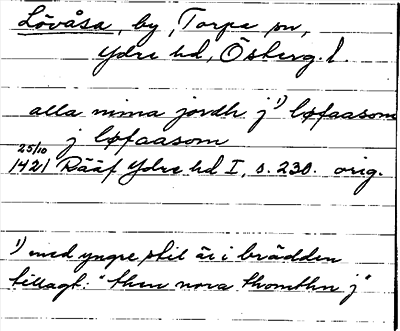 Lövåsa, by, Torpa sn,
Ydre hd, Östberg. l.
alla mina jordh j ¹) løfaasom
j løfaasom
25/10
1421 Rääf Ydre hd I, s. 230. orig.
¹) med yngre stil är i brädden
tillagt: "then nora thompthn j"